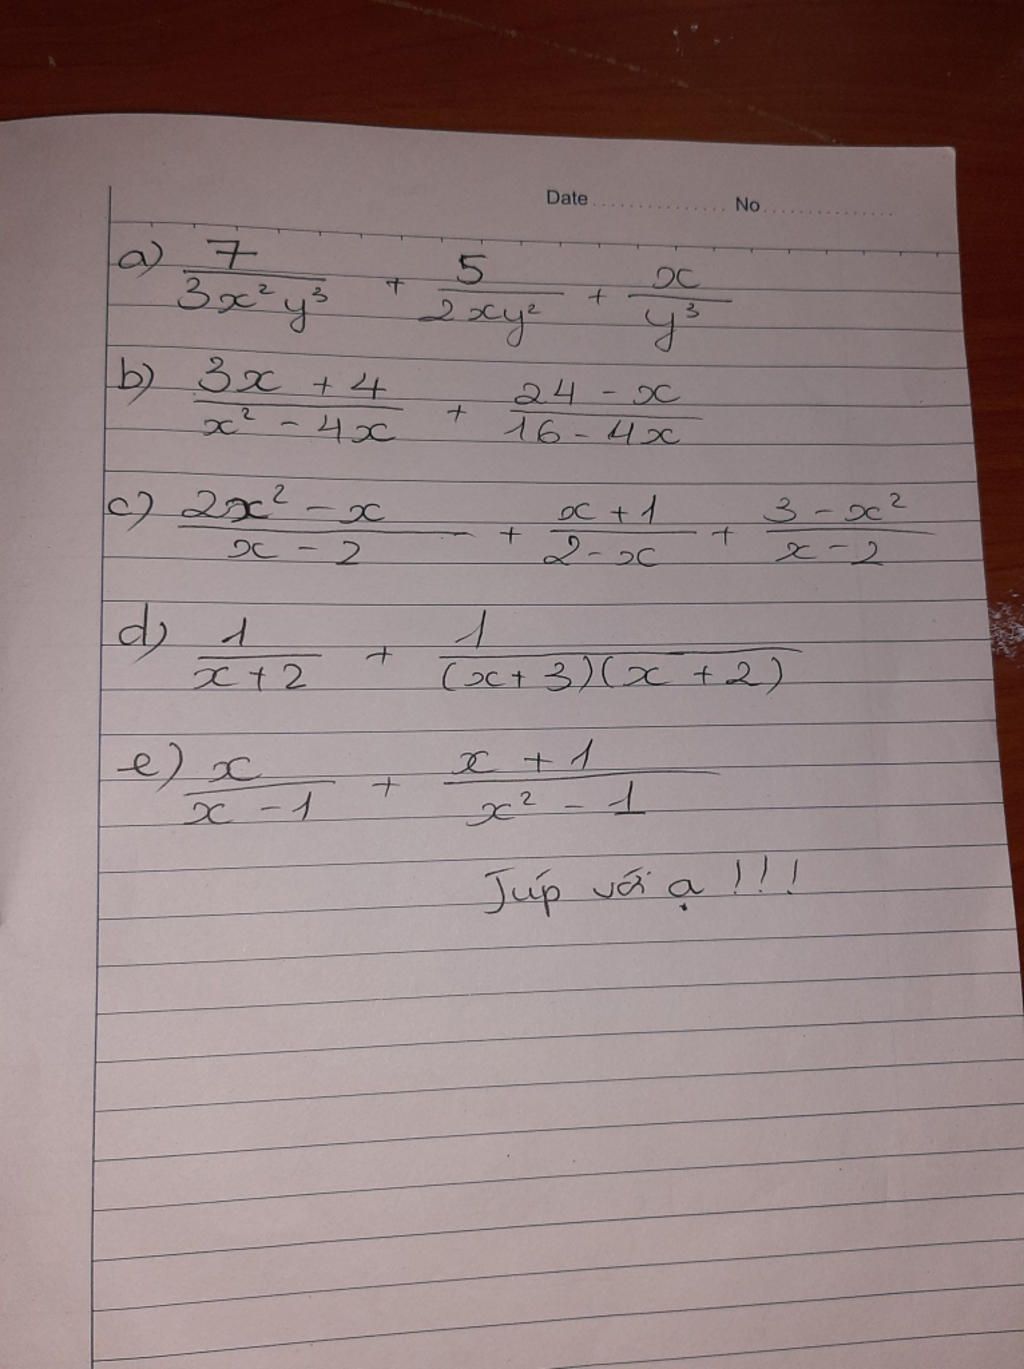 Date ............... No ...............
a) 7/(3x²y³) + 5/(2xy²) + x/y³
b) (3x + 4)/(x² - 4x) + (24 - x)/(16 - 4x)
c) (2x² - x)/(x - 2) + (x + 1)/(2 - x) + (3 - x²)/(x - 2)
d) 1/(x + 2) + 1/((x + 3)(x + 2))
e) x/(x - 1) + (x + 1)/(x² - 1)
Júp với ạ !!!